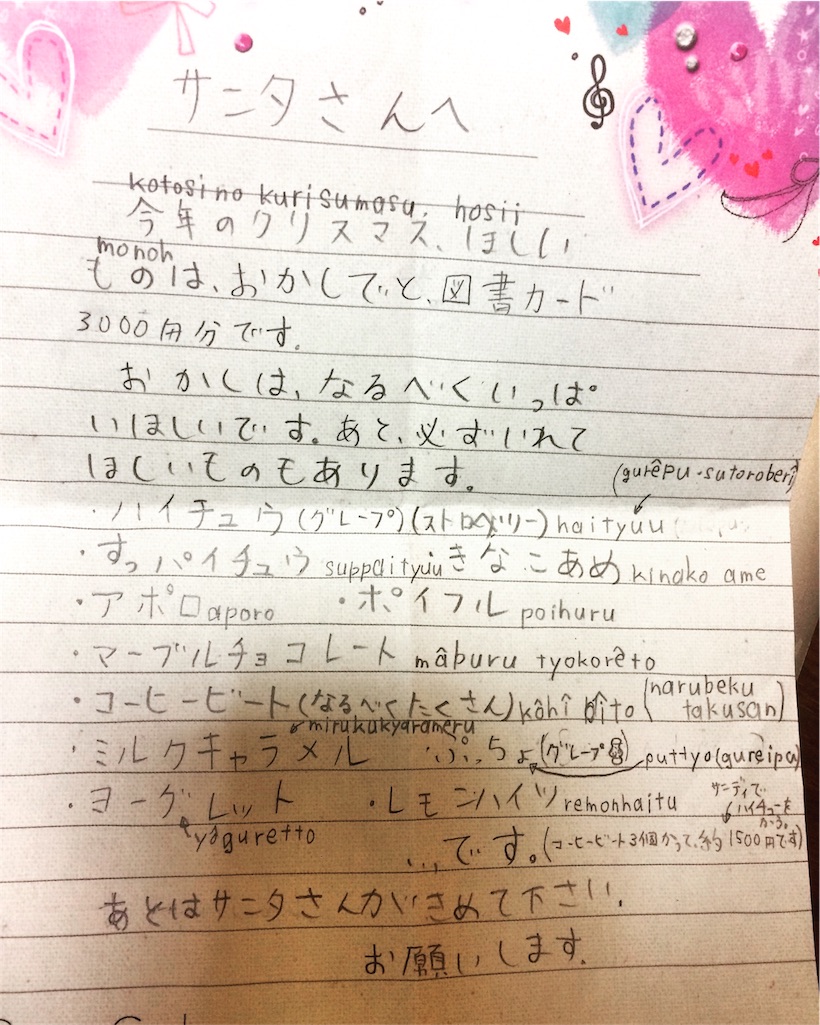 サンタさんへ
kotosino kurisumasu, hosii
今年のクリスマス、ほしい
monoh
ものは、おかしでと、図書カード
3000円分です。
おかしは、なるべくいっぱ
いほしいです。あと、必ずいれて
ほしいものもあります。
(gurêpu・sutoroberî)
・ハイチュウ(グレープ)(ストロベリー)haityuu
・すっパイチュウ suppaityuu きなこあめ kinako ame
・アポロ aporo ・ポイフル poihuru
・マーブルチョコレート mâburu tyokorêto
・コーヒービート(なるべくたくさん)kôhî bîto (narubeku takusan)
mirukukyarameru
・ミルクキャラメル ・ぷっちょ(グレープ) puttyo(gureipu)
・ヨーグレット ・レモンハイツ remonhaitu
yôguretto
サンディで
ハイチューを
かう。
...です。(コーヒービート3個かって、約1500円です)
あとはサンタさんがきめて下さい。
お願いします。